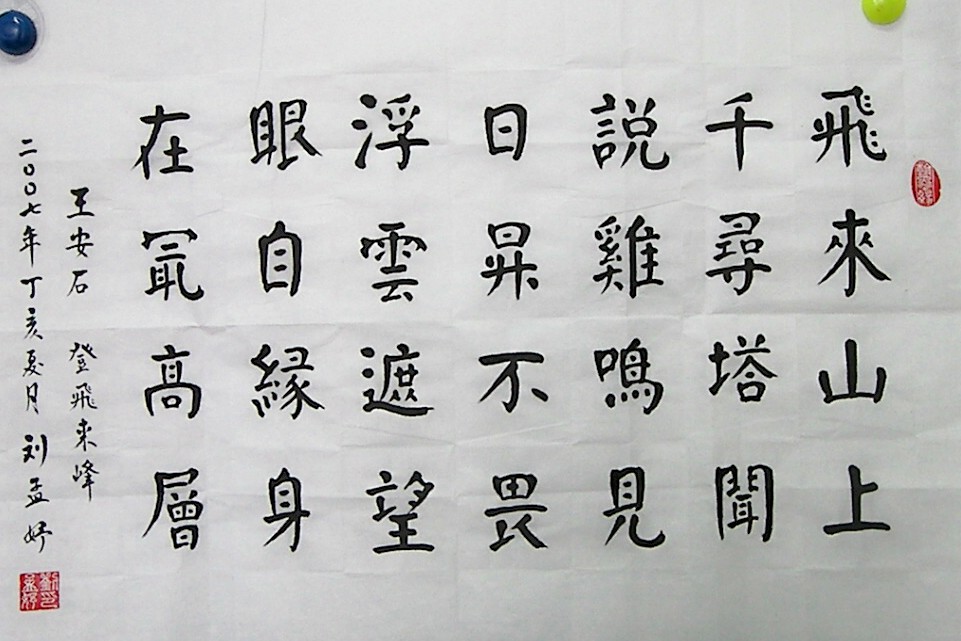 飛來山上
千尋塔聞
説雞鳴見
日昇不畏
浮雲遮望
眼自緣身
在冣高層
王安石 登飛来峰
二〇〇七年丁亥夏月 刘孟妤